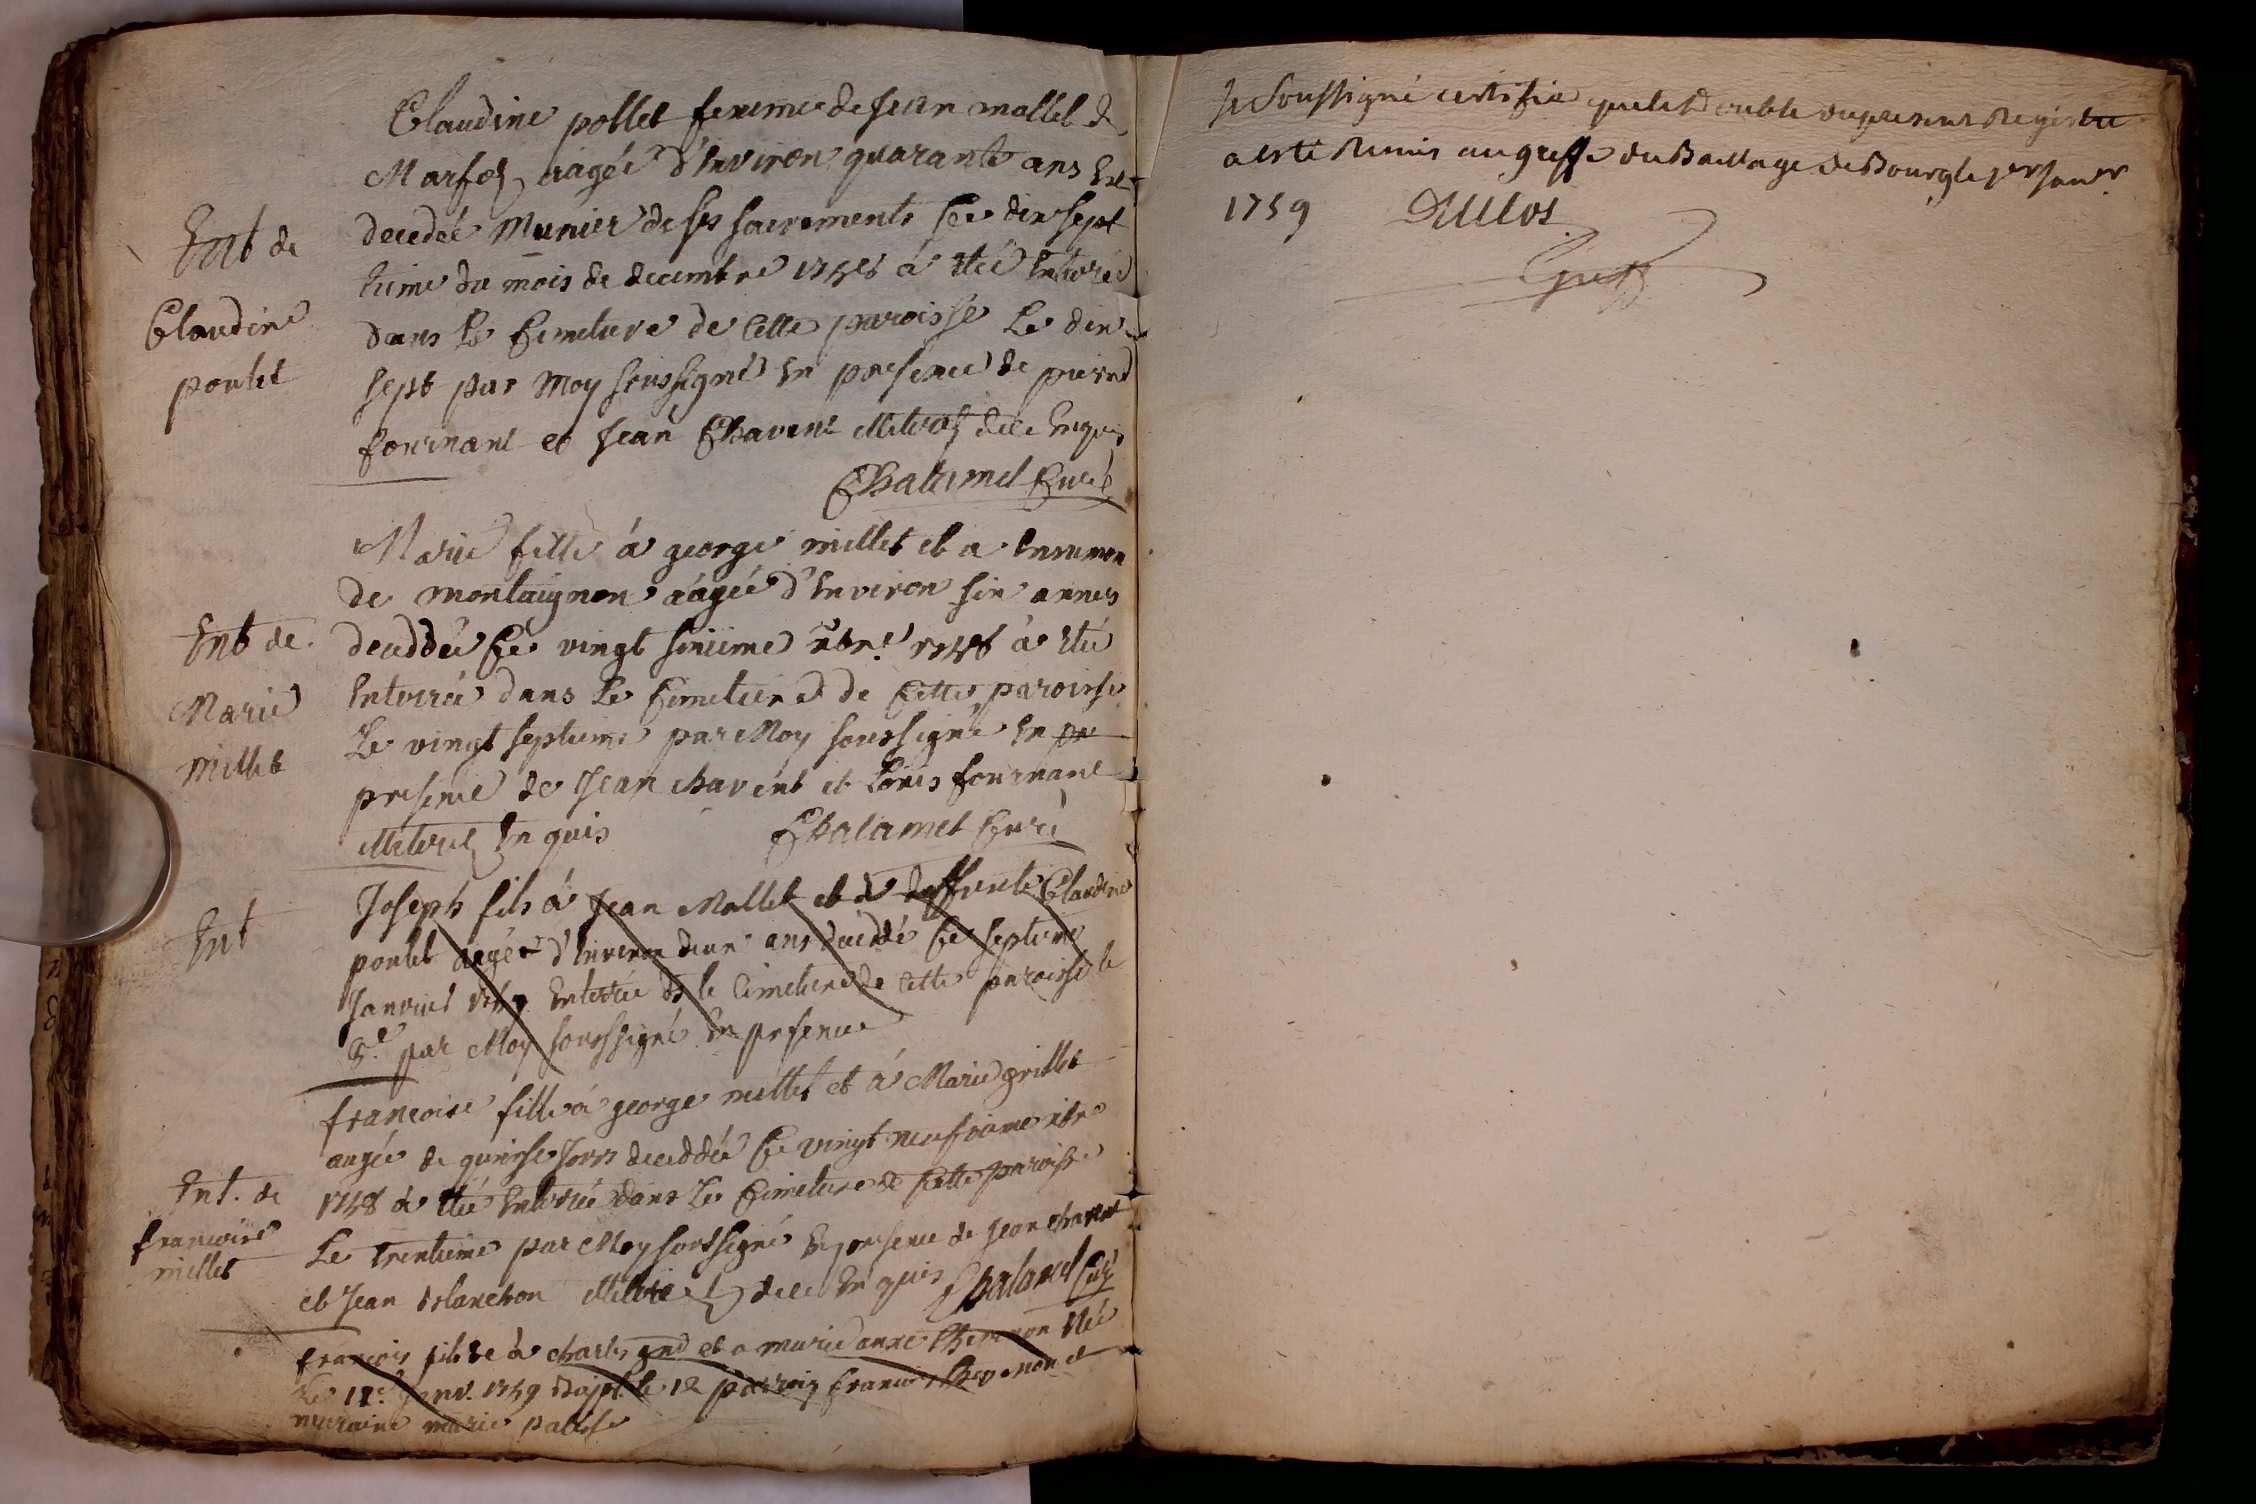 Claudine pollet femme de Jean mallet de
Marfoz aagée d'Environ quarante ans Est
decedée Munier de ses sacrements Ce dix sept
du mois de decembre 1758 á Eté Enterée
dans Le Cimetiere de Cette paroisse Le dix
sept par Moy soussigné En presence de pierre
fournant et Jean Chavent illiterez de ce Enquis
Chalamel Curé
Ent de
Claudine
poulet
Marie fille á george millet et a
de montaignon aágée d'Environ six annes
deceddée Ce vingt sixiieme xbre 1758 á Eté
Enterrée dans Le Cimetiere de Cette paroisse
Le vingt septieme par Moy soussigné En pre
presence de Jean chavent et Louis fournant
illiterez Enquis Chalamel Curé
Ent de
Marie
millet
Joseph fils á Jean Mallet et á deffunte Claudine
poulet aagée d'Environ deux ans decedé Ce septieme
Janvier 1759 Enterrée ds le Cimetiere de Cette paroisse le
8e par Moy soussigné En presence
Ent
francoise fille á george millet et á Marie grillet
augée de quinse Jours deceddée Ce vingt neufvieme xbre
1758 á Eté Enterrée dans Le Cimetiere de Cette paroisse
Le trentieme par Moy soussigné En presence de Jean chavent
et Jean blanchon illiterez de ce Enquis Chalamel Curé
Ent. de
francoise
millet
francois fils á charles et a marie anne Chevenon Né
Le 11e Janv. 1759 Bapt. le 12 parrein francois Chevenon et
maraine marie
Je Soussigné certifie que le double du present Registre
a esté Remis au greffe du Baillage de Bourg le 1er Janer
1759